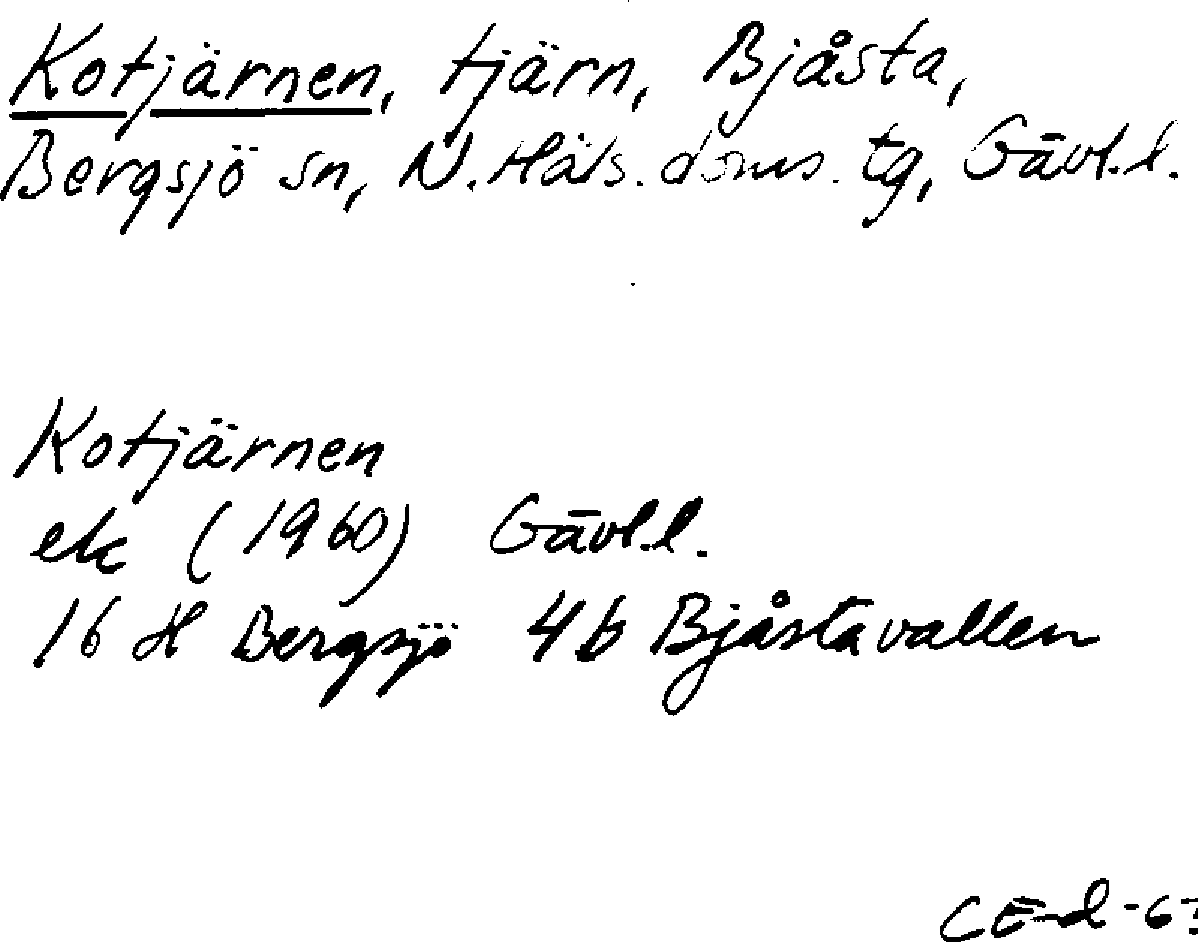 Kotjärnen, tjärn, Bjåsta,
Bergsjö sn, N. Häls. doms. tg, Gävl.l.
Kotjärnen
ek (1960) Gävl.l.
16 H Bergsjö 4b Bjåstavallen